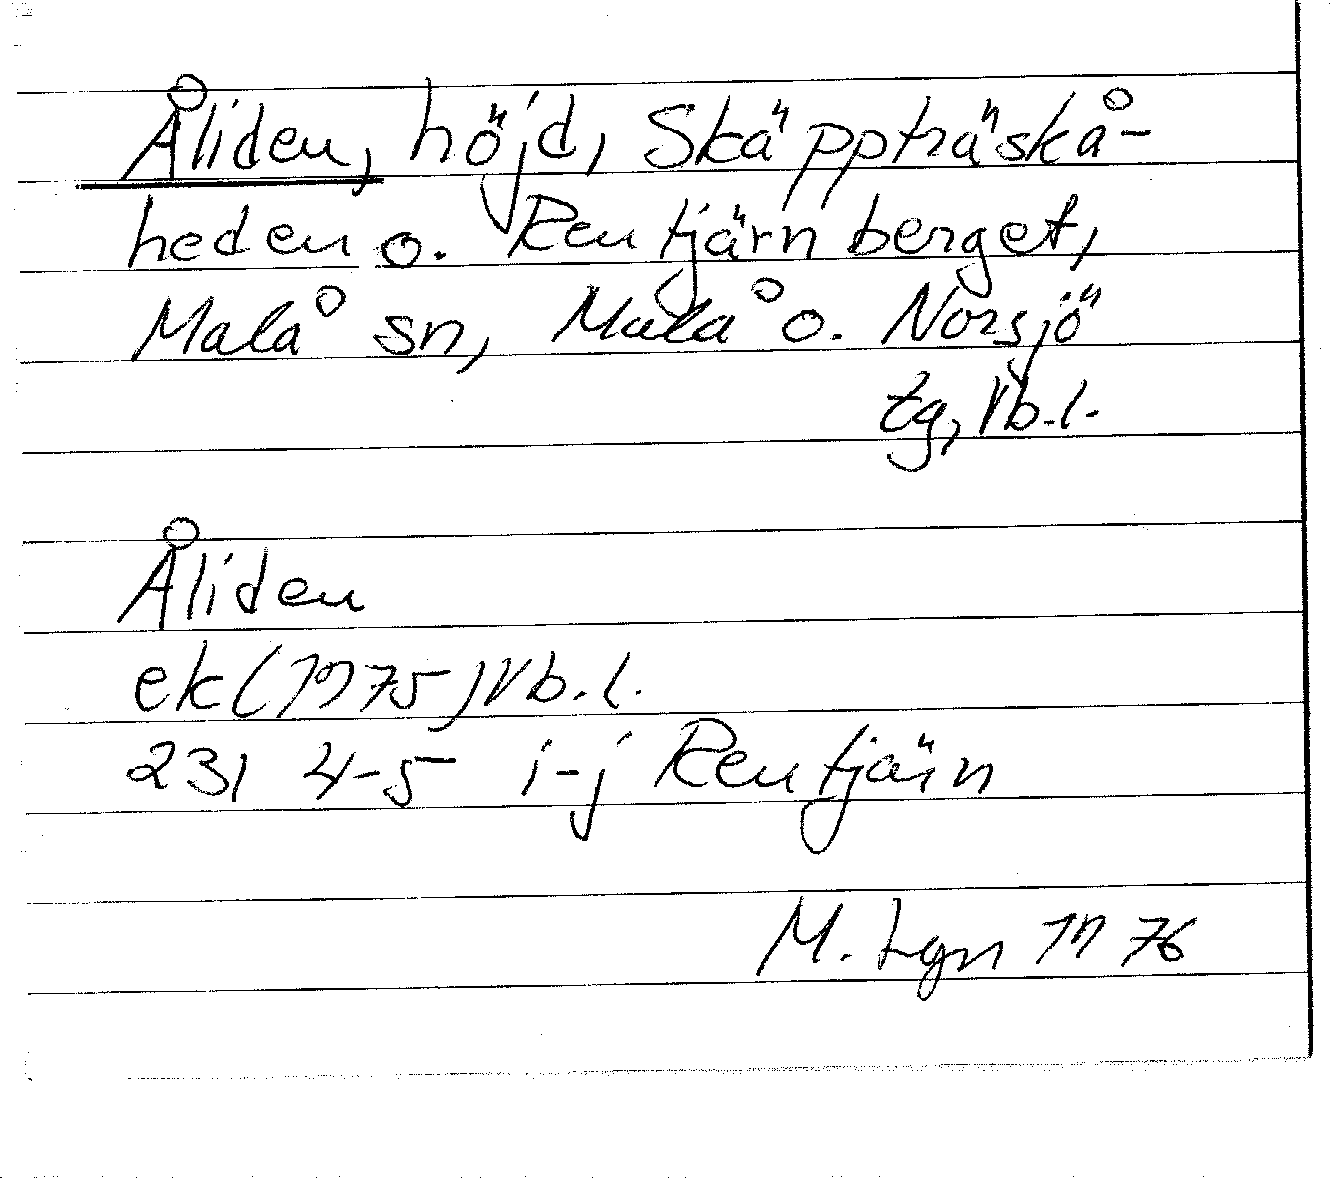 Åliden, höjd, Skäppträskå-
heden o. Rentjärnberget,
Malå sn, Malå o. Norsjö
tg, Vb.l.
Åliden
ek (1975) Vb.l.
23I 4-5 i-j Rentjärn
M. Lgn 1976